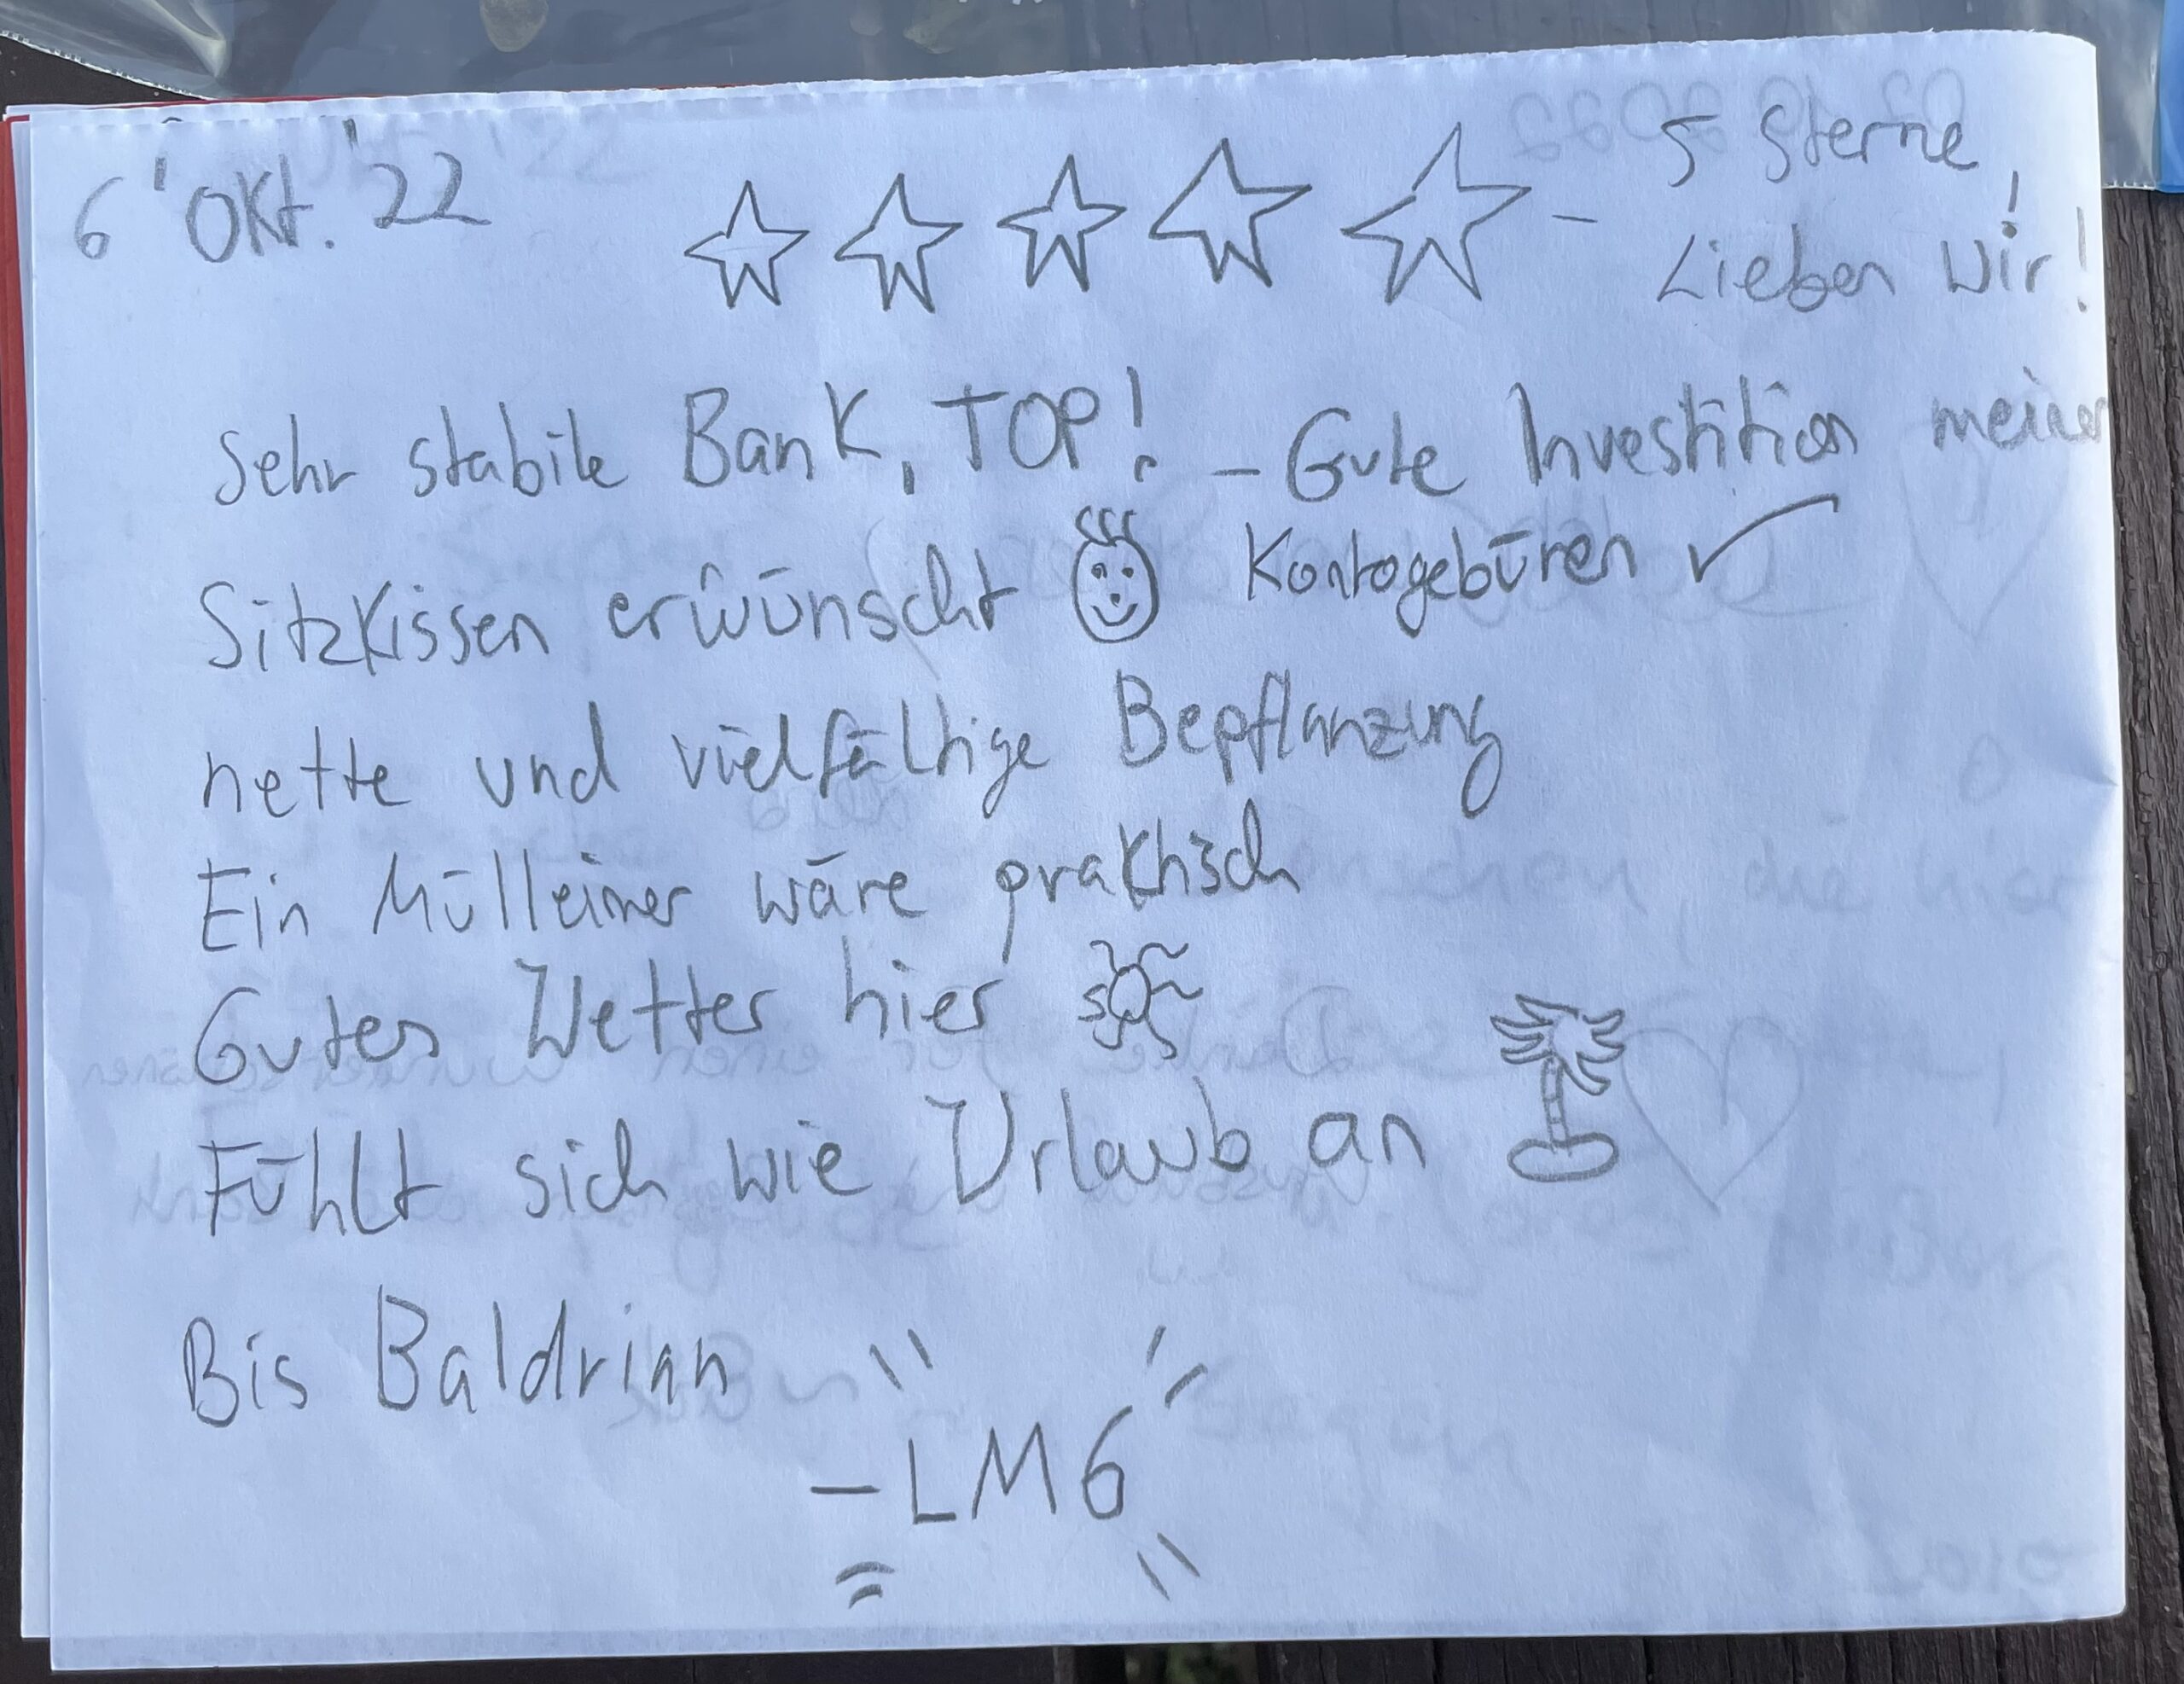 6 'Okt. '22
- 5 Sterne,
Lieben wir!!
Sehr stabile Bank, TOP! - Gute Investition meiner
Sitzkissen erwünscht Kontogebüren ✓
nette und vielfältige Bepflanzung
Ein Mülleimer wäre praktisch
Gutes Wetter hier
Fühlt sich wie Urlaub an
Bis Baldrian
- LM6